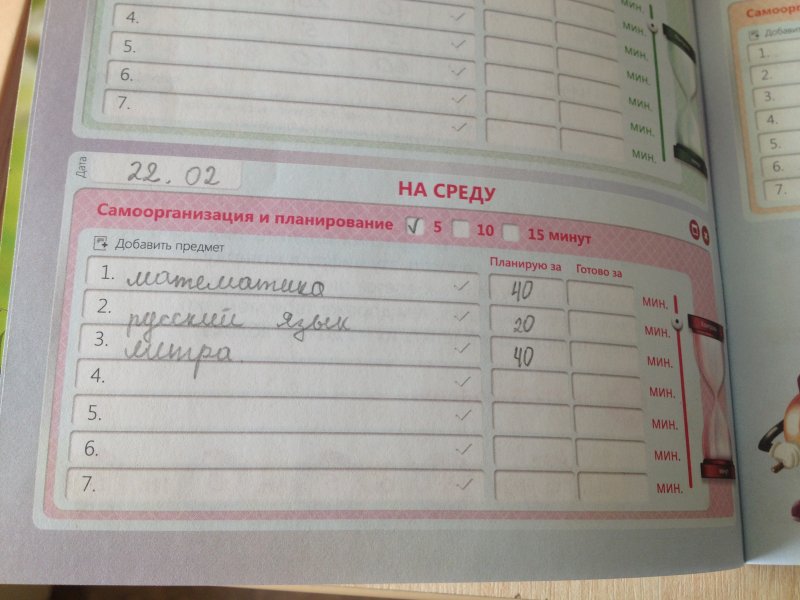 4.
5.
6.
7.
мин.
мин.
мин.
мин.
мин.
мин.
Самоорг
Добавить
1.
2.
3.
4.
5.
6.
7.
Дата
22.02
НА СРЕДУ
Самоорганизация и планирование 5 10 15 минут
Добавить предмет Планирую за Готово за
1. математика 40 мин.
2. русский язык 20 мин.
3. литра. 40 мин.
4. мин.
5. мин.
6. мин.
7. мин.